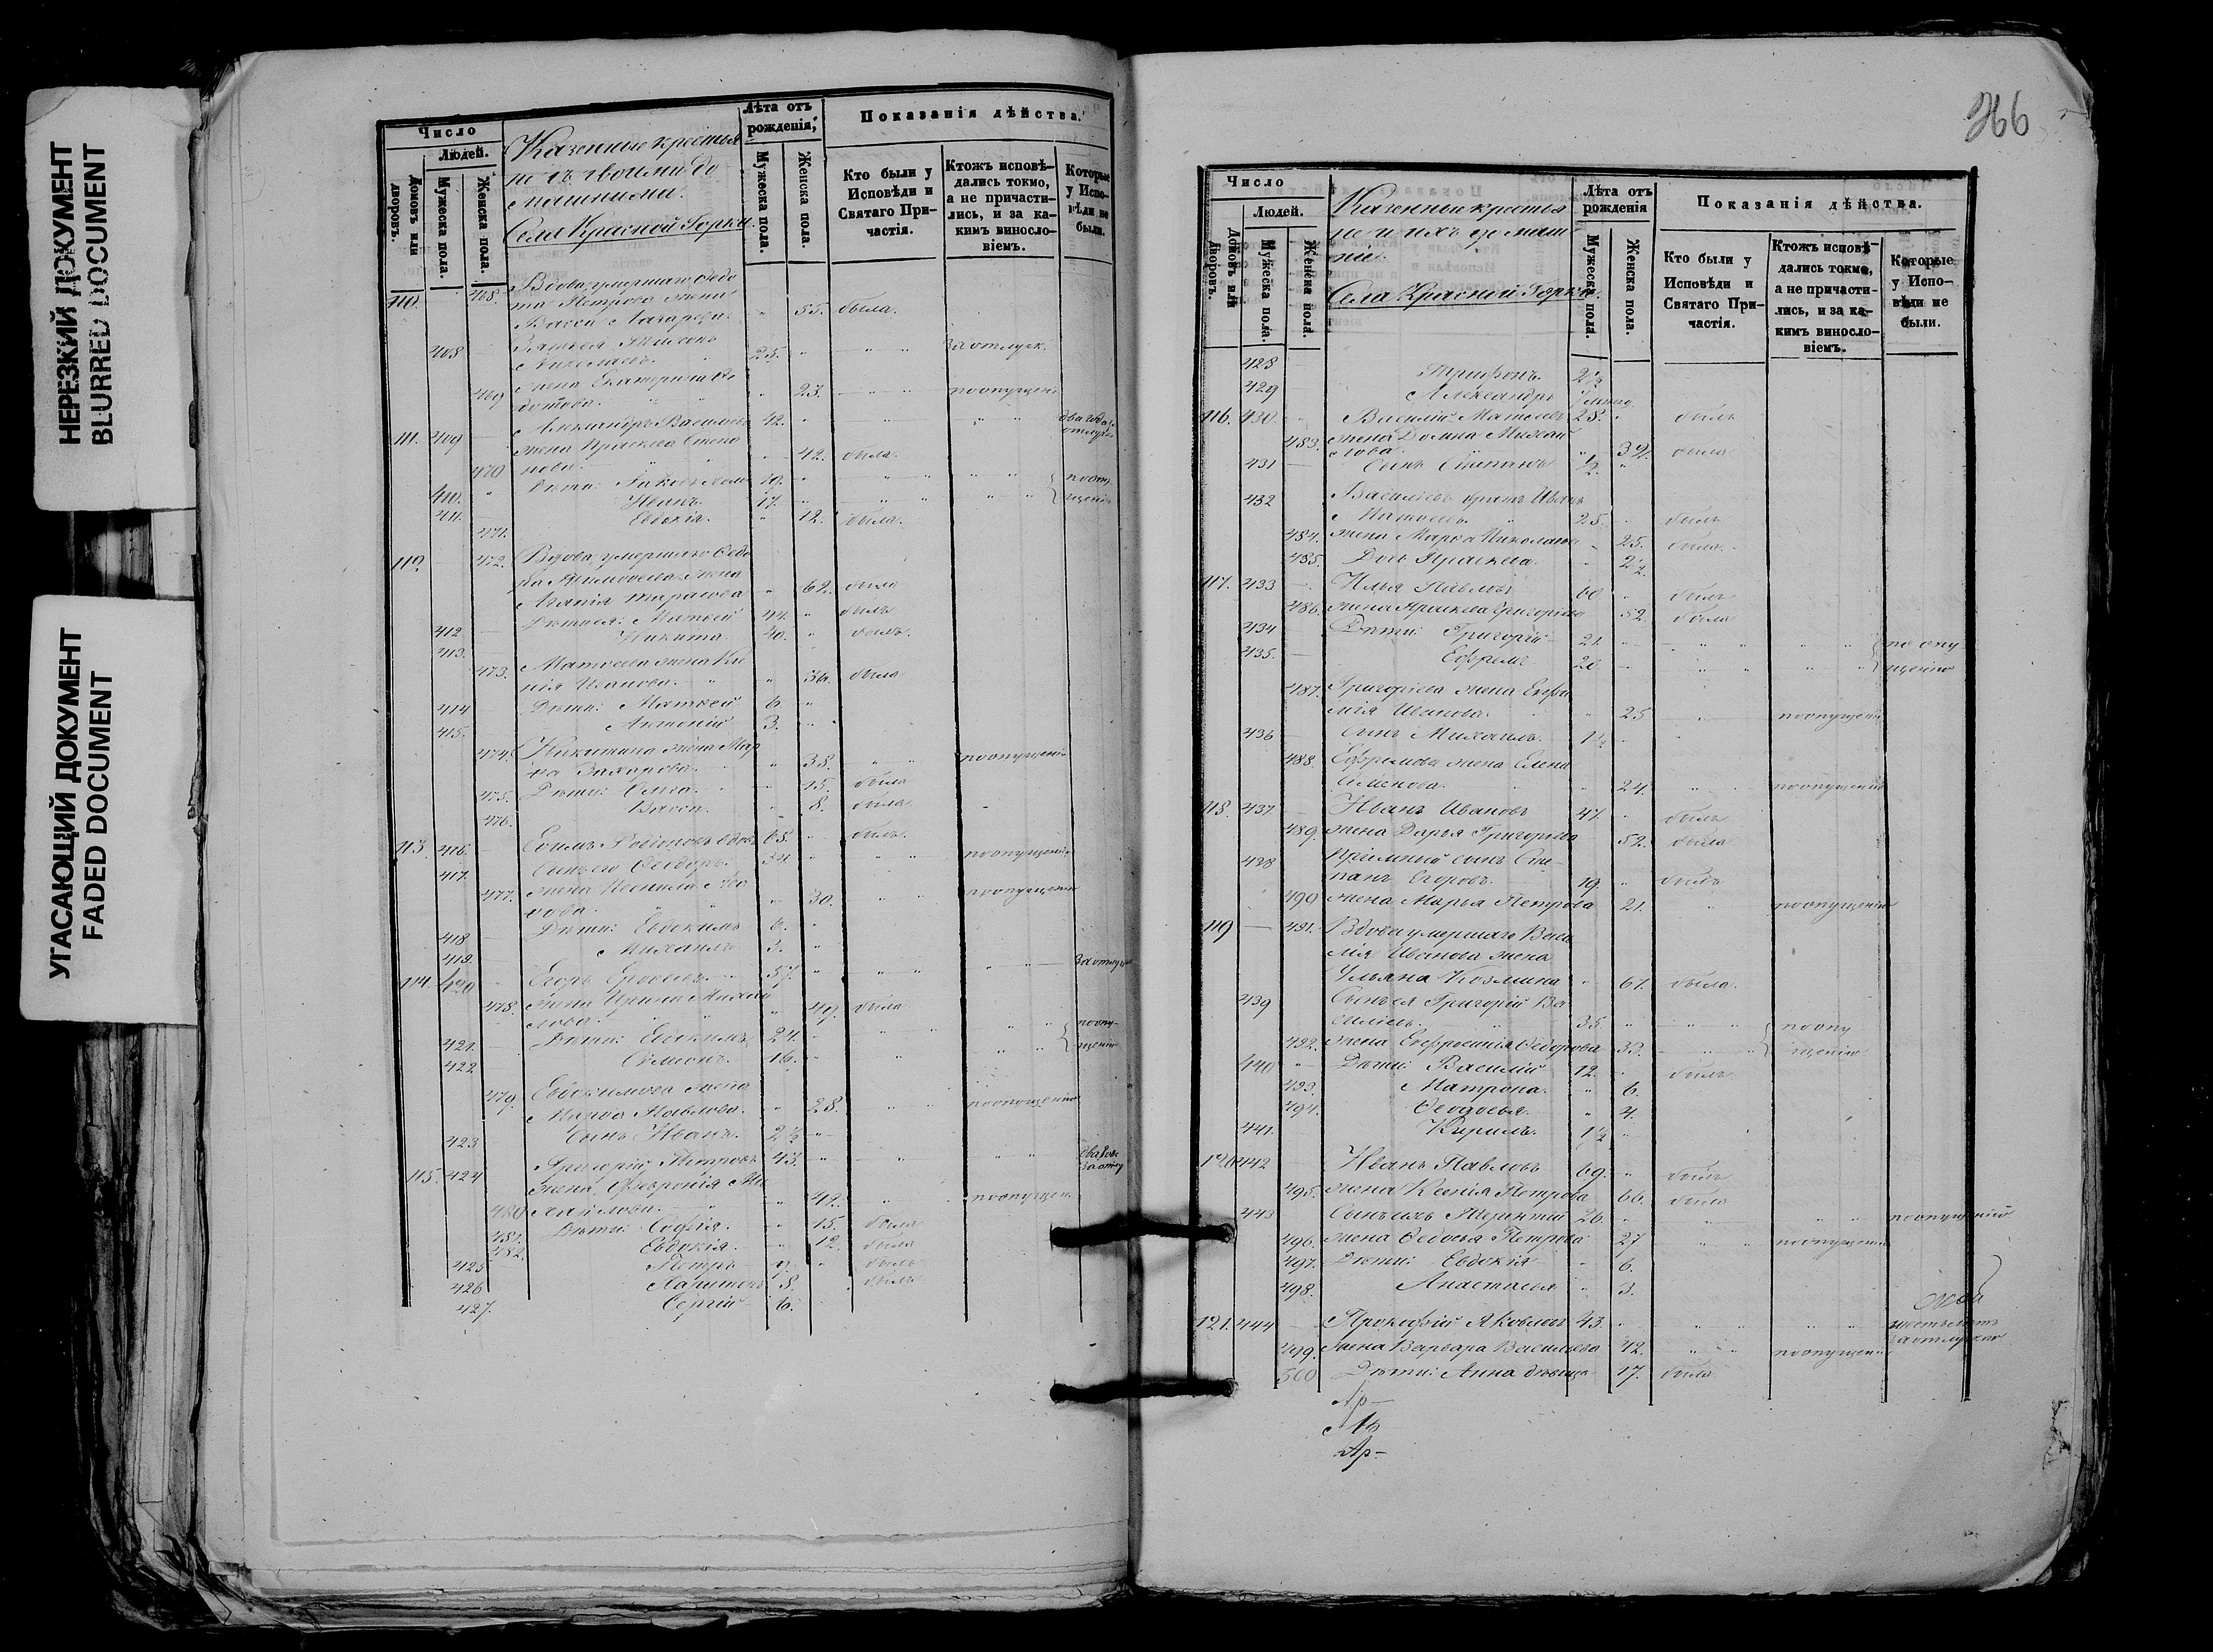 НЕРЕЗКИЙ ДОКУМЕНТ
BLURRED DOCUMENT
УГАСАЮЩИЙ ДОКУМЕНТ
FADED DOCUMENT
Число
Людей.
Домовъ или дворовъ.
Мужеска пола.
Женска пола.
Казенные крестья
не съ своими до
машними.
Села Красной Горки.
Лѣта отъ рожденія,
Мужеска пола.
Женска пола.
Показанія дѣйства.
Кто были у Исповѣди и Святаго При-частія.
Ктожъ исповѣ-дались токмо, а не причасти-лись, и за ка-кимъ винословіемъ.
Которые у Испо-вѣди не были.
110. 468. Вдова умершаго Ѳедо
та Петрова жена
Васса Лазарева. 55. была.
408 25. За отлуч.
469 жена Екатерина Ѳе
дотова. 23. по опущен
111. 409 Александръ Васильевъ 42. два года
отлуч
470 жена Прасковья Степа
нова. 42. была.
410. Дѣти: 19. по оп
411. Иванъ. 17. щенію
471. Евдокія. 12. была.
112. 472. Вдова умершаго
жена
Агапія Тарасова 62. была
412 Дѣти ея: Матвей 44. былъ
413. Никита. 40. былъ.
473. Матвеева жена Ксе
нія Иванова. 36. была
414 Дѣти: Матвей 6.
415. Антоній 3.
474. Никитина жена Мар
Захарова. 38. по опущенію
475. Дѣти: 15. была
476. Васса. 8. была
113. 416. Родіоновъ вдовъ 65. былъ.
417. Сынъ его Ѳеодоръ. 34 по опущенію
477. жена
нова. 30. по опущенію
418 Дѣти: Евдокимъ 6.
419. Михаилъ 3.
114. 420 Егоръ 57. За отлуч
478. жена Ирина Михаи
лова. 49. была
421. Дѣти: Евдокимъ. 24. по опу-
422 Симеонъ. 16. щенію
479. Евдокимова жена
Марѳа Павлова. 28. по опущенію
423 Сынъ Иванъ. 2½
115. 424 Григорій Петровъ 43. два года
за отлу
480 жена Ѳевронія Ми
хайлова. 42. по опущен.
481. Дѣти: Софія. 15. была
482. Евдокія. 12. была
425 Петръ былъ
426 Харитонъ 8. былъ
427. Сергій 6.
266
Число
Людей.
Домовъ или дворовъ.
Мужеска пола.
Женска пола.
Казенные крестья
не и ихъ домаш
ніе.
Села Красной Горки.
Лѣта отъ рожденія
Мужеска пола.
Женска пола.
Показанія дѣйства.
Кто были у Исповѣди и Святаго При-частія.
Ктожъ исповѣ-дались токмо, а не причасти-лись, и за ка-кимъ винословіемъ.
Которые у Испо-вѣди не были.
428 Трифонъ. 2½
429 Александръ
116. 430. Василій Матвеевъ 28. былъ
483. жена Домна Михай
лова. 32. была
431 Сынъ Степанъ ½.
432 Васильевъ братъ Иванъ
Матвеевъ. 25. былъ
484. жена Марѳа Николаева 25. была.
485. Дочь Прасковья. 2½.
117. 433 Илья Павловъ 60 былъ
486. жена Прасковья Григорьева 52. была
434 Дѣти: Григорій 21. по опу
435. Ефремъ 20 щенію
487. Григорьева жена Евфи
мія Иванова. 25 по опущенію
436 Сынъ Михаилъ. 1½
488. Ефремова жена Елена
Семенова. 24. по опущенію
118. 437 Иванъ Ивановъ 47. былъ
489. жена Дарья Григорьева 52. была
438 Пріемный сынъ Сте-
панъ Егоровъ. 19. былъ
490 жена Марья Петрова 21. по опущенію
119 491. Вдова умершаго Васи
лія Иванова жена
Ульяна Козмина 67. была.
439 Сынъ ея Григорій Ва
сильевъ. 35. по опу
492. жена Евфросинья Ѳедорова 33. щенію
440 Дѣти: Василій 12. былъ
493. Матрона. 6.
494. Ѳеодосья. 4.
441. Кирилъ. 1½
120 442 Иванъ Павловъ 69. былъ
495. жена Ксенія Петрова 66. была
443 Сынъ ихъ Терентій 26. по опущенію
496. жена Ѳедосья Петрова 27 по опущенію
497. Дѣти: Евдокія 6.
498. Анастасья 3.
121. 444 Прокофій Яковлевъ 43. шесть лѣтъ
за отлучкою
499. жена Варвара Васильева 42. по опущен
500 Дѣти: Анна дѣвица 17. была
Ар-
Ар-